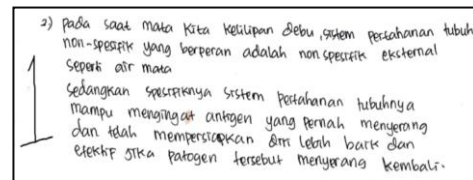 2) pada saat mata kita kelilipan debu, sistem pertahanan tubuh
non-spesifik yang berperan adalah non spesifik eksternal
seperti air mata
sedangkan spesifiknya sistem pertahanan tubuhnya
mampu mengingat antigen yang pernah menyerang
dan telah mempersiapkan diri lebih baik dan
efektif jika patogen tersebut menyerang kembali.
1